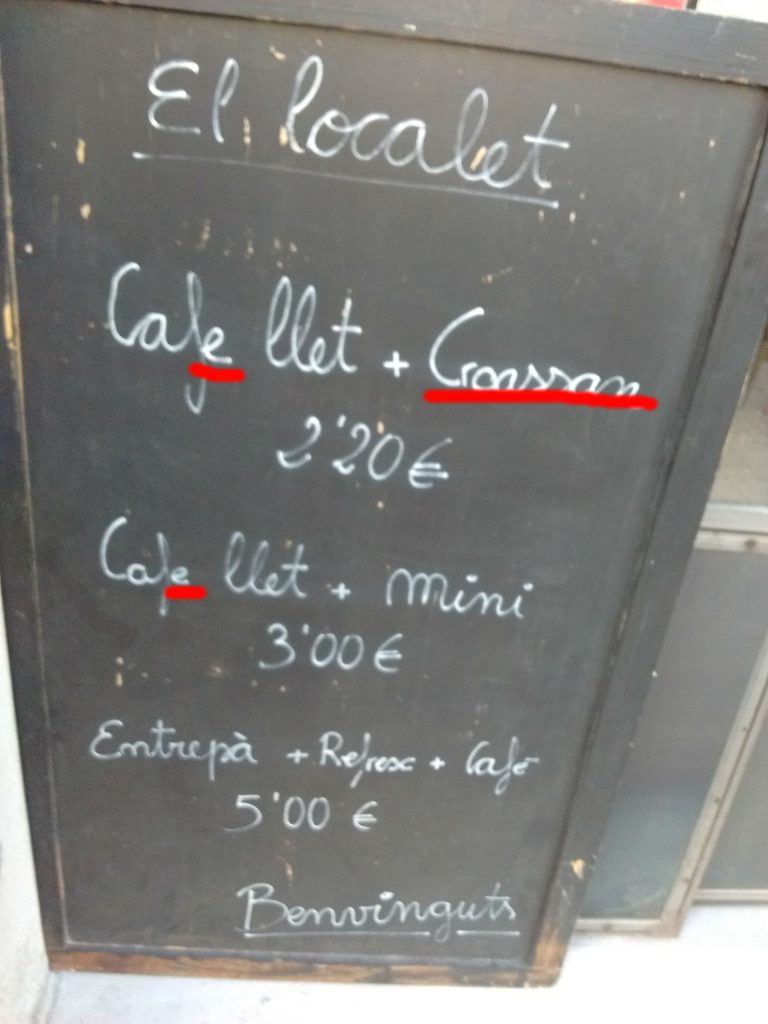 El localet
Cafe llet + Croissan
2'20€
Cafe llet + mini
3'00€
Entrepà + Refresc + Café
5'00 €
Benvinguts